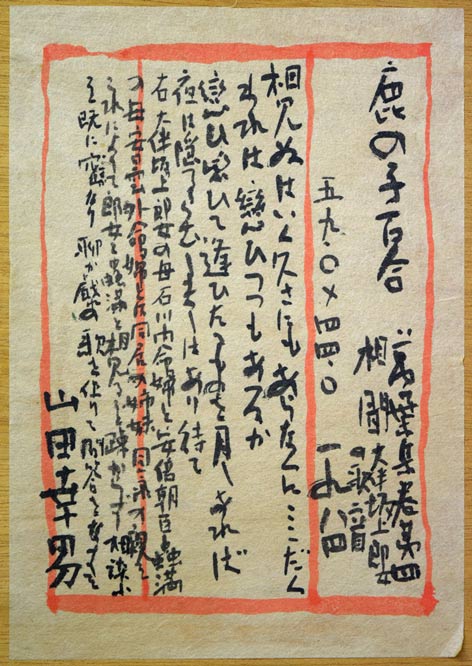 鹿の子百合
萬葉集卷第四
相聞 大伴坂上郎女
の歌二首
五九.〇×四四.〇 一九八四
相見ぬはいく久さにもあらなくにここだく
われは戀ひつつもあるか
戀ひ戀ひて逢ひたるものを月しあれば
夜は隠るらむしましはあり待て
右大伴坂上郎女の母石川内命婦と安倍朝臣虫満
の母安曇外命婦とは同居の姉妹同氣の親
これによりて郎女と虫満と相見ること疎からず相談ふ
こと既に密なり 聊か戯の歌を作りて問答をなす
山田幸男